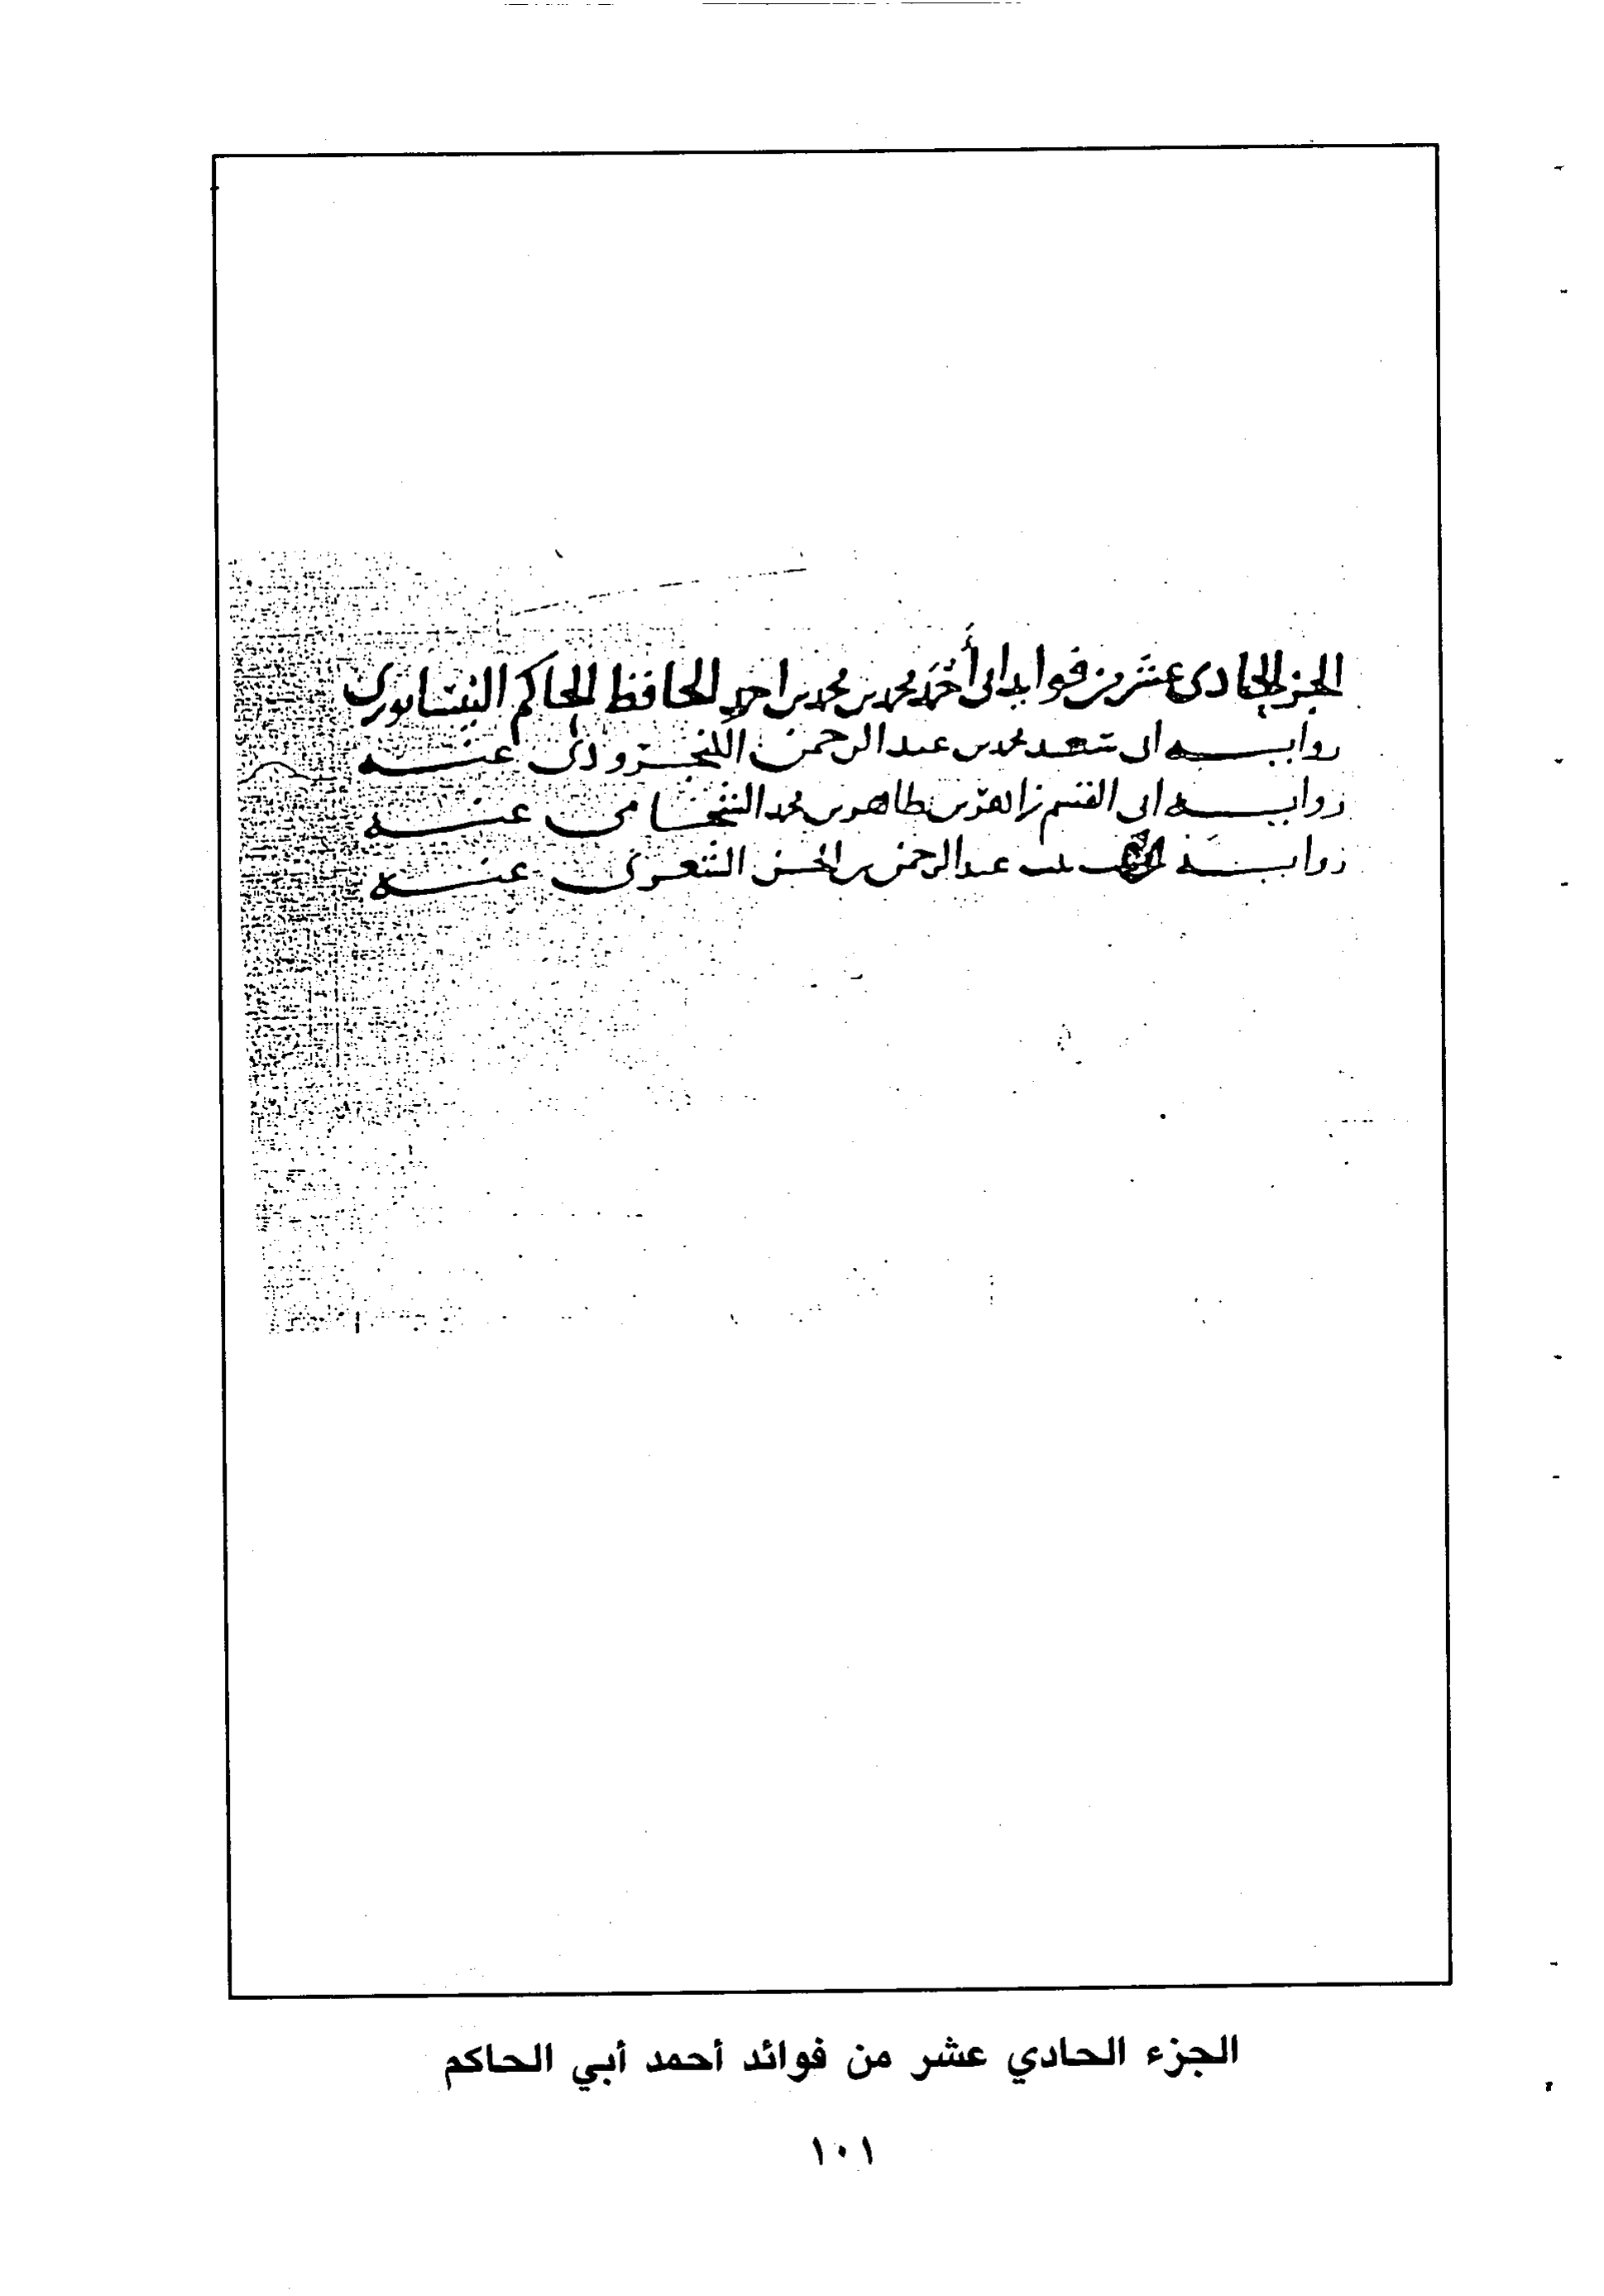 الجزء الحادي عشر من فوايد ابي أحمد محمد بن محمد بن احمد الحافظ الحاكم النيسابوري
رواية ابي سعد محمد بن عبد الرحمن الكنجروذي عنه
رواية ابي القسم زاهر بن طاهر بن محمد الشحامي عنه
رواية عبد الرحمن بن الحسن الشعري عنه
الجزء الحادي عشر من فوائد أحمد أبي الحاكم
١٠١